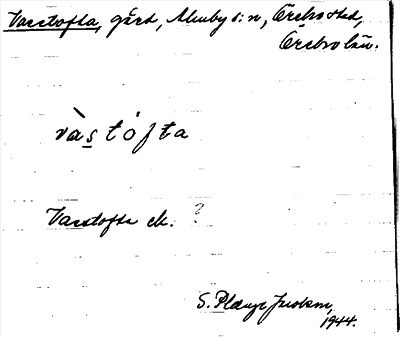 Varstofta, gård, Almby s:n, Örebro stad,
Örebro län.
vàstófta
Varstofta ek. ?
S. Plænge Jacobson,
1944.